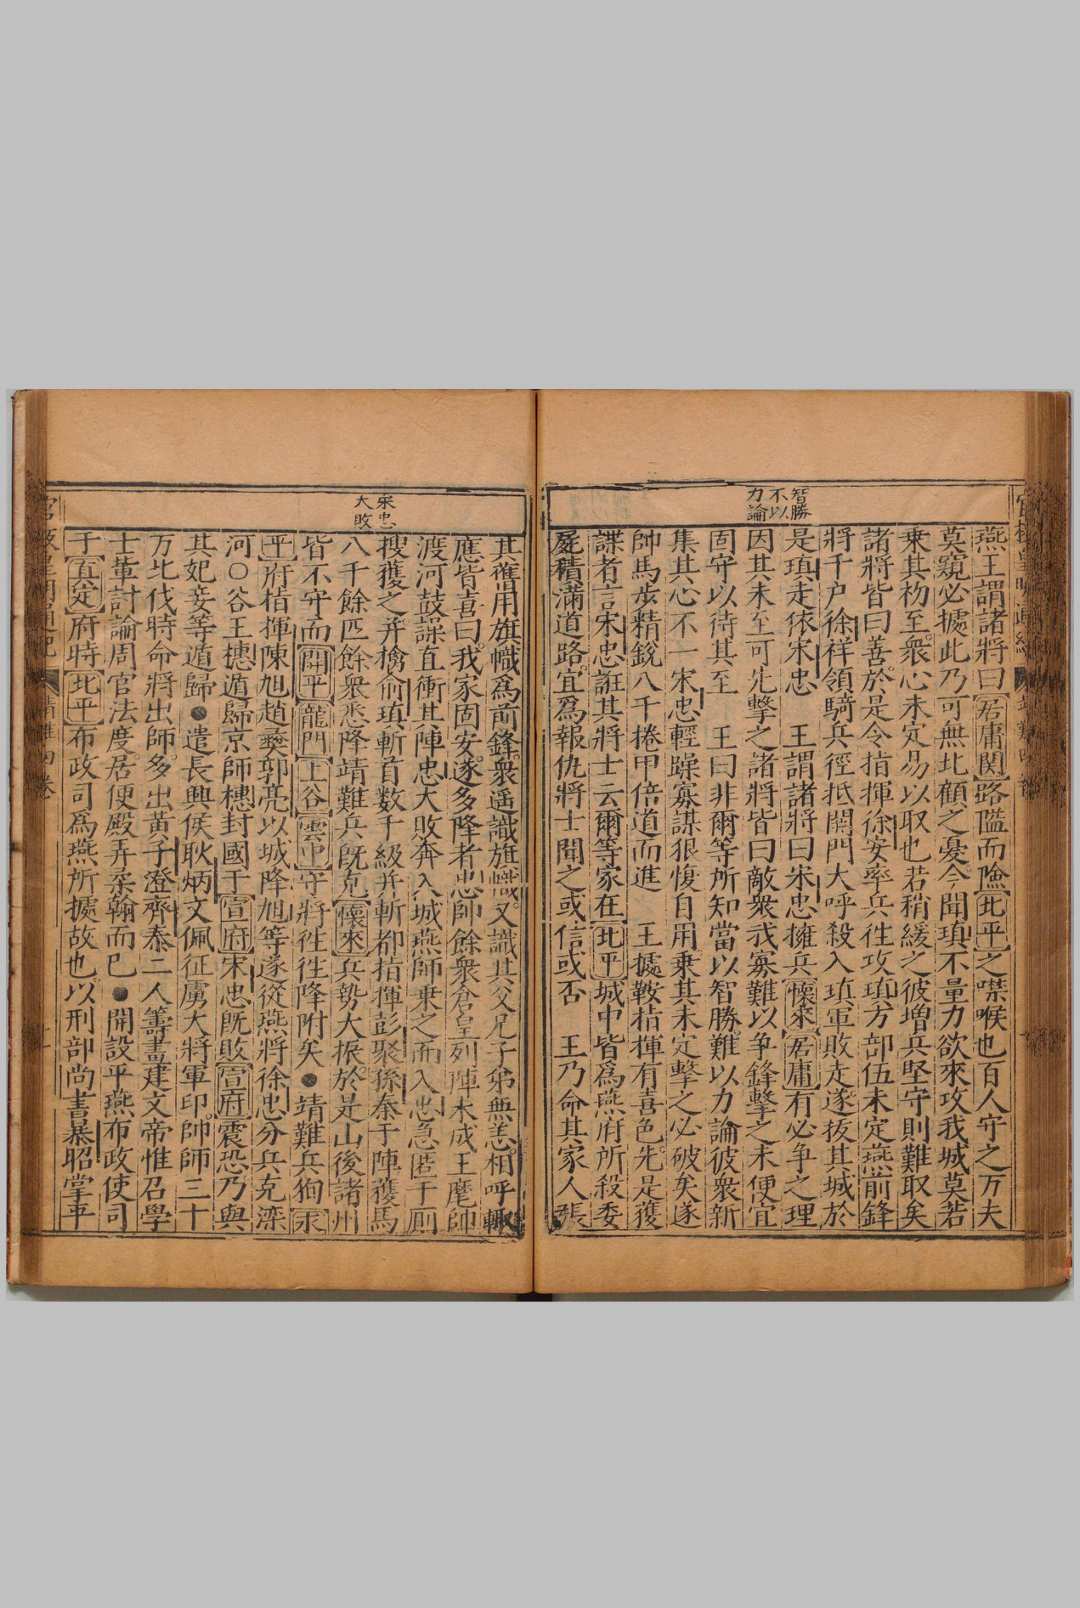 智勝
不以
力論
燕王謂諸將曰居庸関路隘而險北平之噤喉也百人守之万夫
莫窺必據此乃可無北顧之憂今聞瑱不量力欲來攻我城莫若
乗其初至衆心未定易以取也若稍緩之彼增兵堅守則難取矣
諸將皆曰善於是令指揮徐安率兵徃攻瑱方部伍未定燕前鋒
將千户徐祥領騎兵徑抵関門大呼殺入瑱軍敗走遂抜其城於
是瑱走依宋忠　王謂諸將曰宋忠擁兵懷來居庸有必争之理
因其未至可先擊之諸將皆曰敵衆我寡難以争鋒擊之未便宜
固守以待其至　王曰非爾等所知當以智勝難以力論彼衆新
集其心不一宋忠輕躁寡謀狠愎自用乗其未定擊之必破矣遂
帥馬步精銳八千捲甲倍道而進　王據鞍指揮有喜色先是獲
諜者言宋忠誑其將士云爾等家在北平城中皆爲燕府所殺委
屍積滿道路宜爲報仇將士聞之或信或否　王乃命其家人張
宋忠
大敗
其舊用旗幟爲前鋒衆遥識旗幟又識其父兄子弟無恙相呼輙
應皆喜曰我家固安遂多降者忠帥餘衆倉皇列陣未成王麾師
渡河鼓譟直衝其陣忠大敗奔入城燕師乗之而入忠急匿于厠
搜獲之并擒俞瑱斬首数千級并斬都指揮彭聚孫泰于陣獲馬
八千餘匹餘衆悉降靖難兵既克懷來兵勢大振於是山後諸州
皆不守而開平龍門上谷雲中守將徃徃降附矣●靖難兵徇永
平府指揮陳旭趙彝郭亮以城降旭等遂從燕將徐忠分兵克灤
河○谷王橞遁歸京師橞封國于宣府宋忠既敗宣府震恐乃與
其妃妾等遁歸●遣長興侯耿炳文佩征虜大將軍印帥師三十
万北伐時命將出師多出黄子澄齊泰二人籌畫建文帝惟召學
士董討論周官法度居便殿弄柔翰而已●開設平燕布政使司
于真定府時北平布政司爲燕所據故也以刑部尚書暴昭掌平